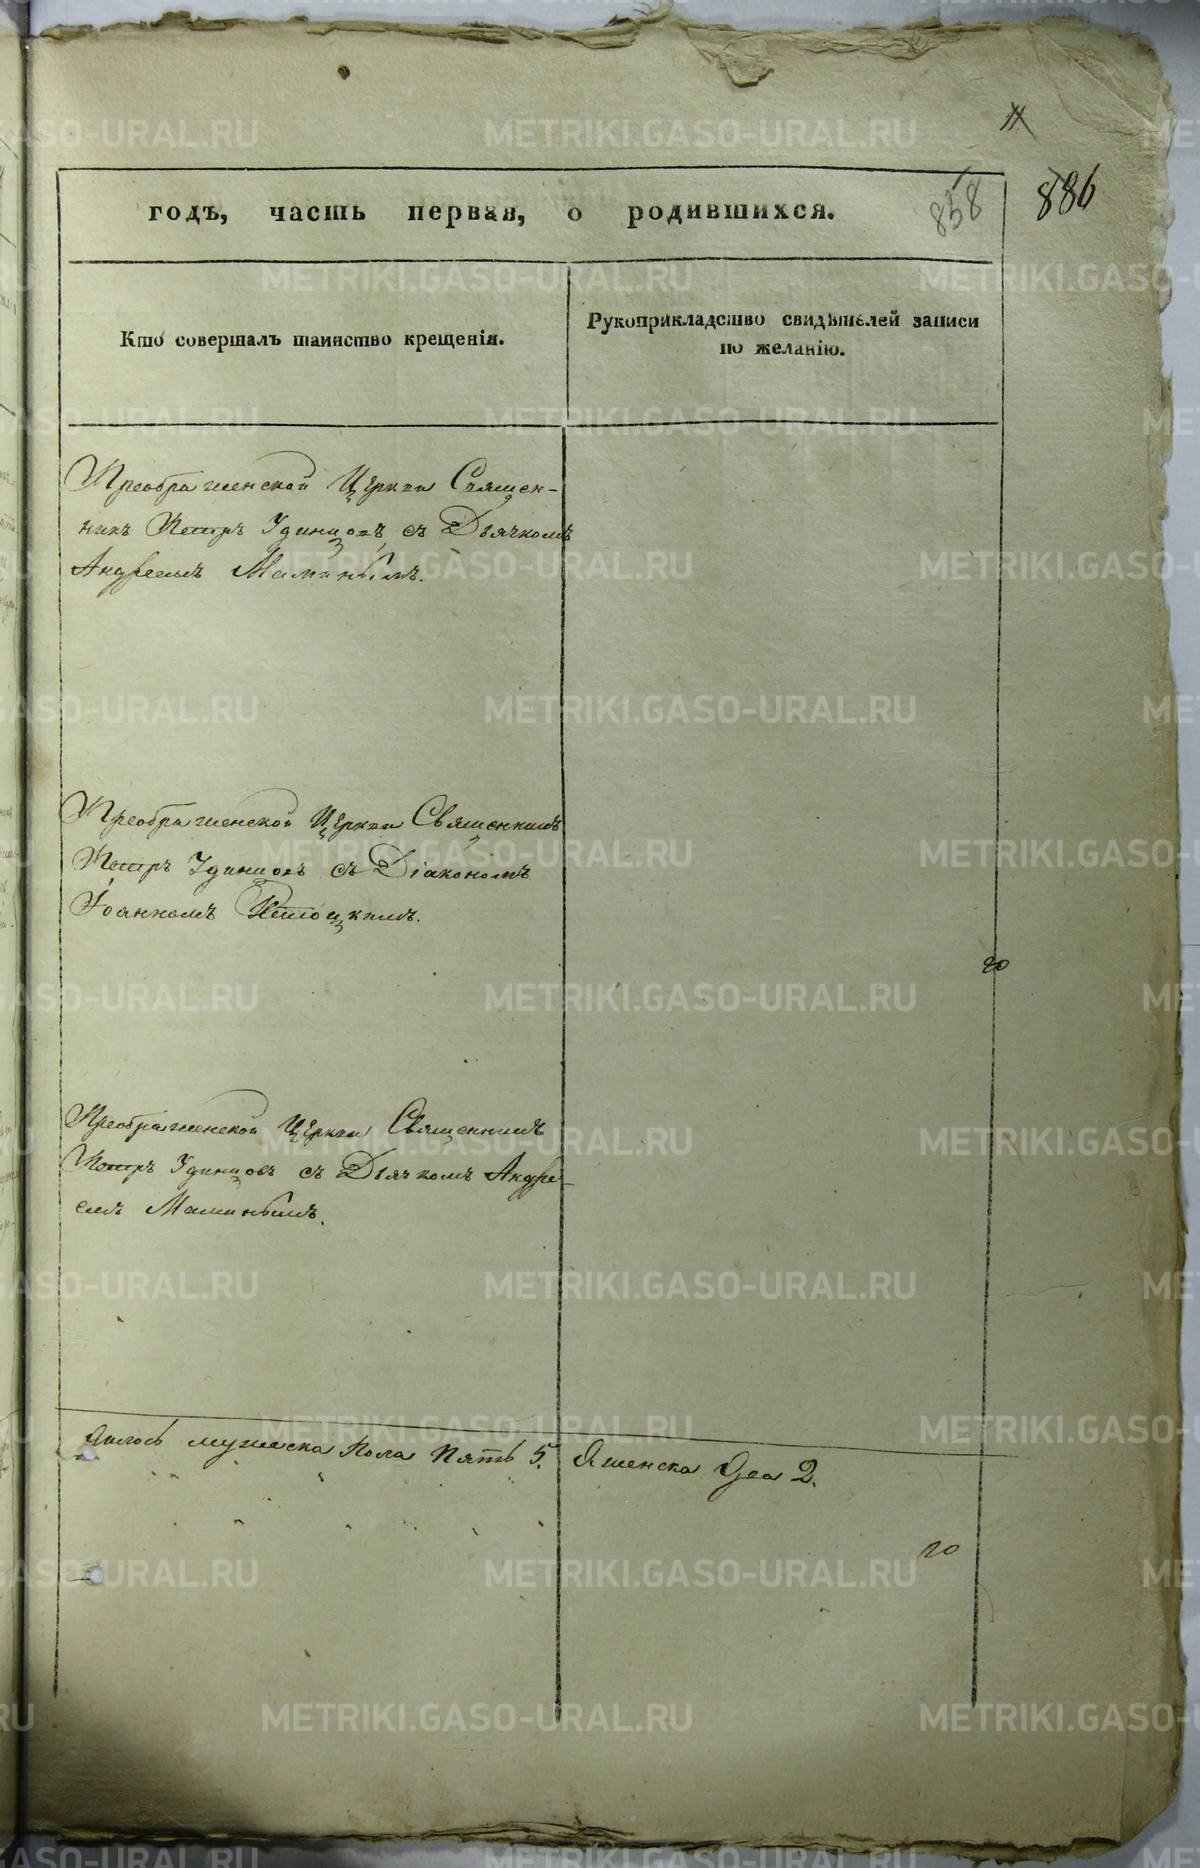 11
886
858
годъ, часть первая, о родившихся.
Кто совершалъ таинство крещенія.
Рукоприкладство свидѣтелей записи
по желанію.
Преображенской Церкви Священ-
никъ Петръ Удинцовъ съ Дьячкомъ
Андреемъ Маминымъ.
Преображенской Церкви Священникъ
Петръ Удинцовъ съ Діакономъ
Іоанномъ
Преображенской Церкви Священникъ
Петръ Удинцовъ съ Дьячкомъ Андре-
емъ Маминымъ.
дилось мужеска Пола Пять 5. А женска Два 2.
METRIKI.GASO-URAL.RU